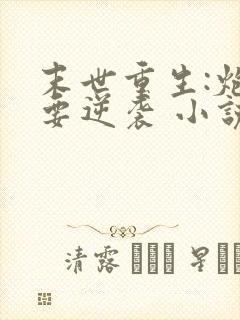 末世重生:炮
要逆袭 小説
清露 星